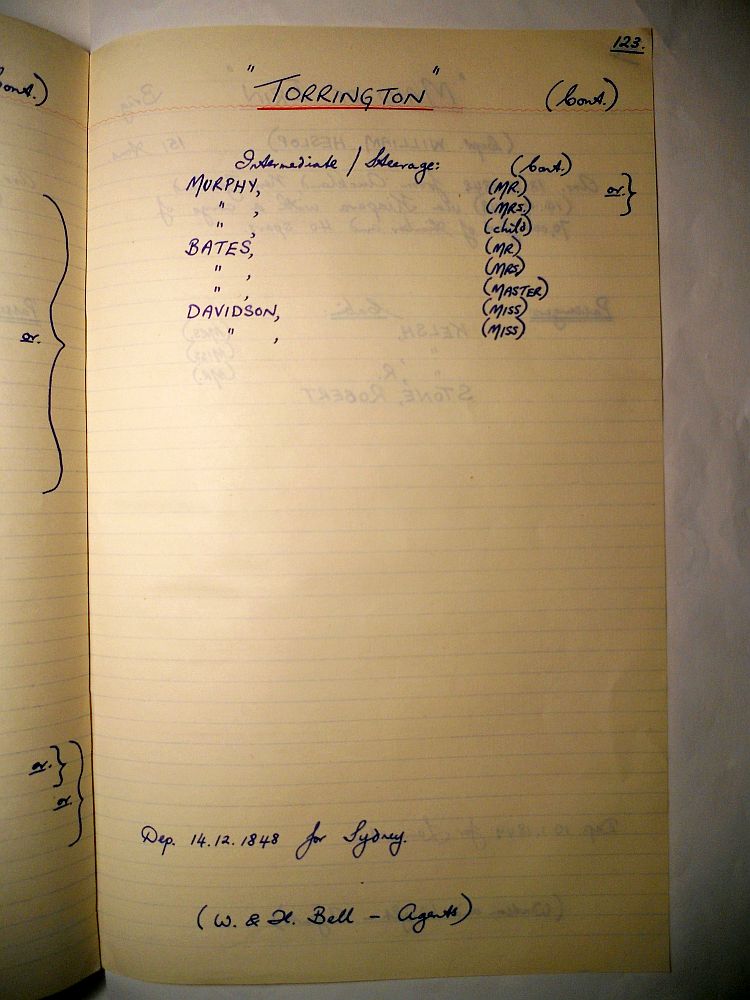 123.
"TORRINGTON" (Cont.)
Intermediate / Steerage: (Cont)
MURPHY, (MR.) or.
" , (MRS.)
" , (child)
BATES, (MR)
" , (MRS)
" , (MASTER)
DAVIDSON, (MISS)
" , (MISS)
Dep. 14.12.1848 for Sydney.
(W. & H. Bell - Agents)
ont.)
or.
or.
or.